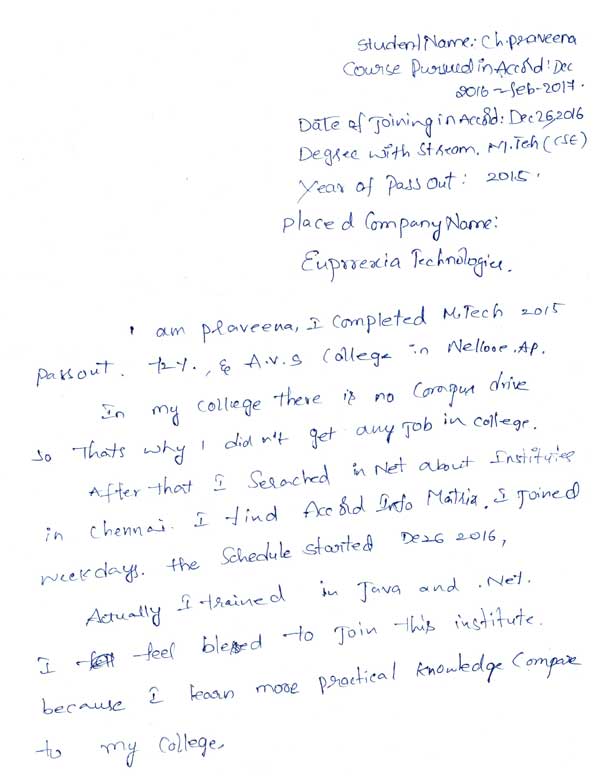 Student Name: Ch.praveena
Course Pursued in Accord: Dec
2016 - Feb-2017.
Date of Joining in Accord: Dec 26, 2016
Degree with Stream. M.Teh (CSE)
Year of Pass Out: 2015.
Placed Company Name:
Euprrexia Technologies.
I am praveena, I completed M.Tech 2015
passout. 72%., & A.V.S College in Nellore.AP.
In my college there is no Corapus drive
So Thats why I didn't get any Job in college.
After that I Serached in Net about Institutes
in Chennai. I find Accord Info Matrix. I joined
weekdays. the Schedule started De26 2016,
Actually I trained in Java and .Net.
I feel blessed to Join this institute.
because I learn more practical knowledge Compare
to my College.